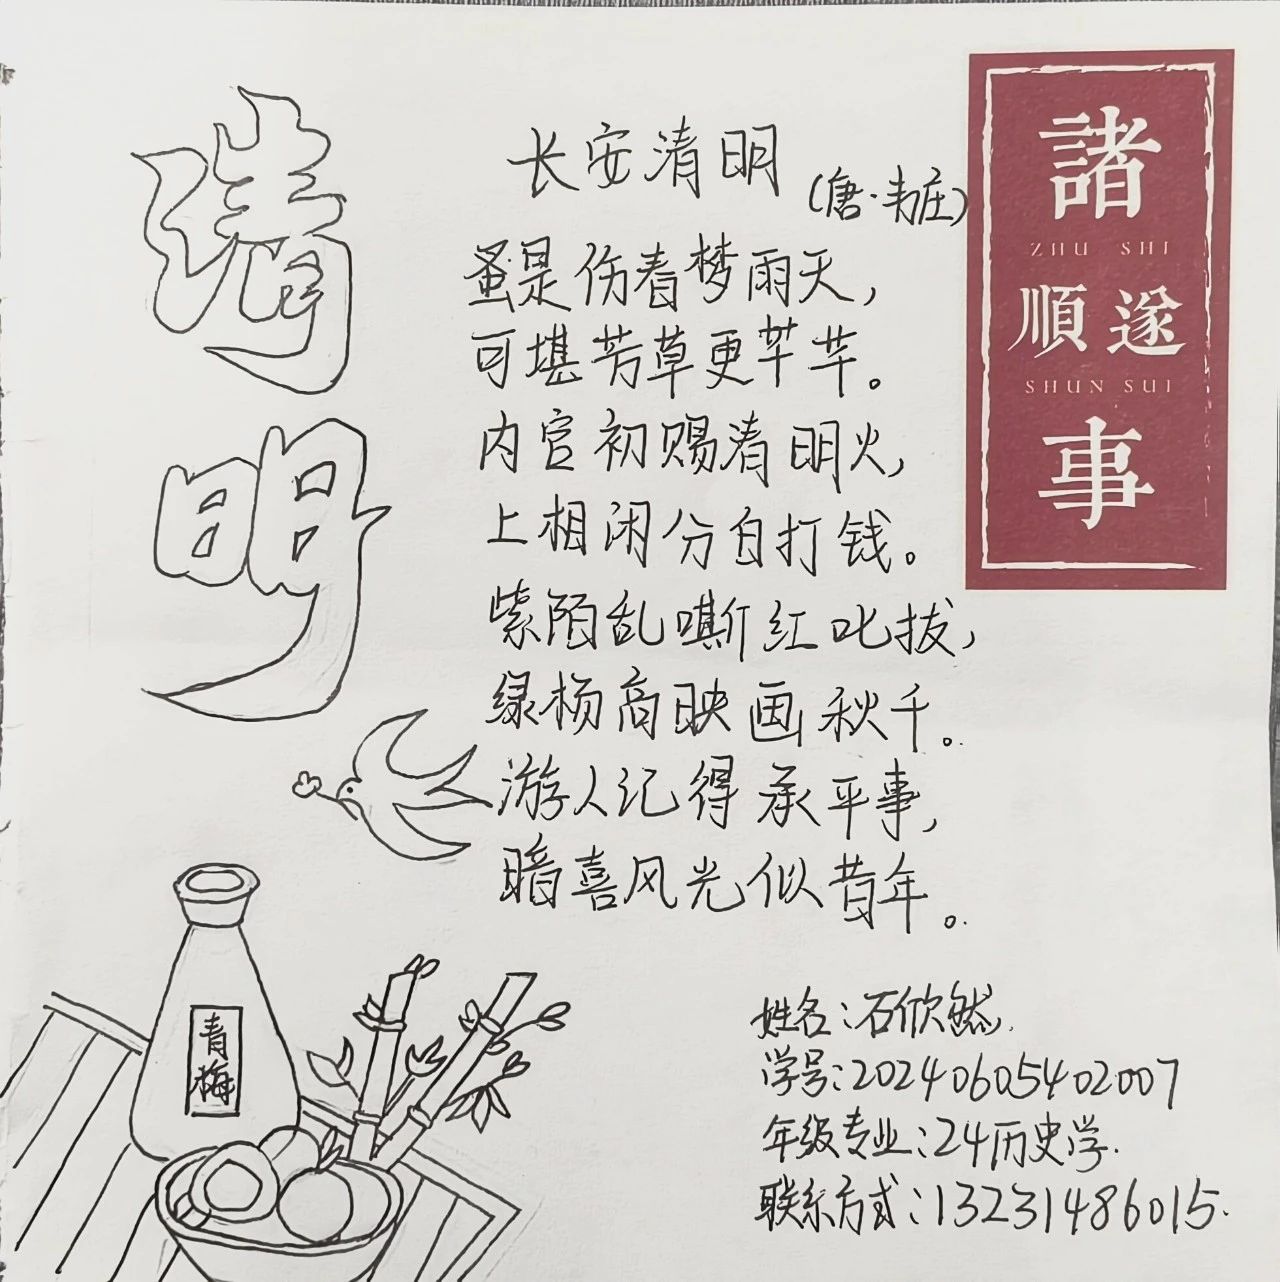 清
明
长安清明
(唐·韦庄)
蚤是伤春梦雨天，
可堪芳草更芊芊。
内官初赐清明火，
上相闲分白打钱。
紫陌乱嘶红叱拔，
绿杨高映画秋千。
游人记得承平事，
暗喜风光似昔年。
諸
ZHU SHI
順遂
SHUN SUI
事
青梅
姓名：石欣然.
学号：20240605402007
年级专业：24历史学.
联系方式：13231486015.